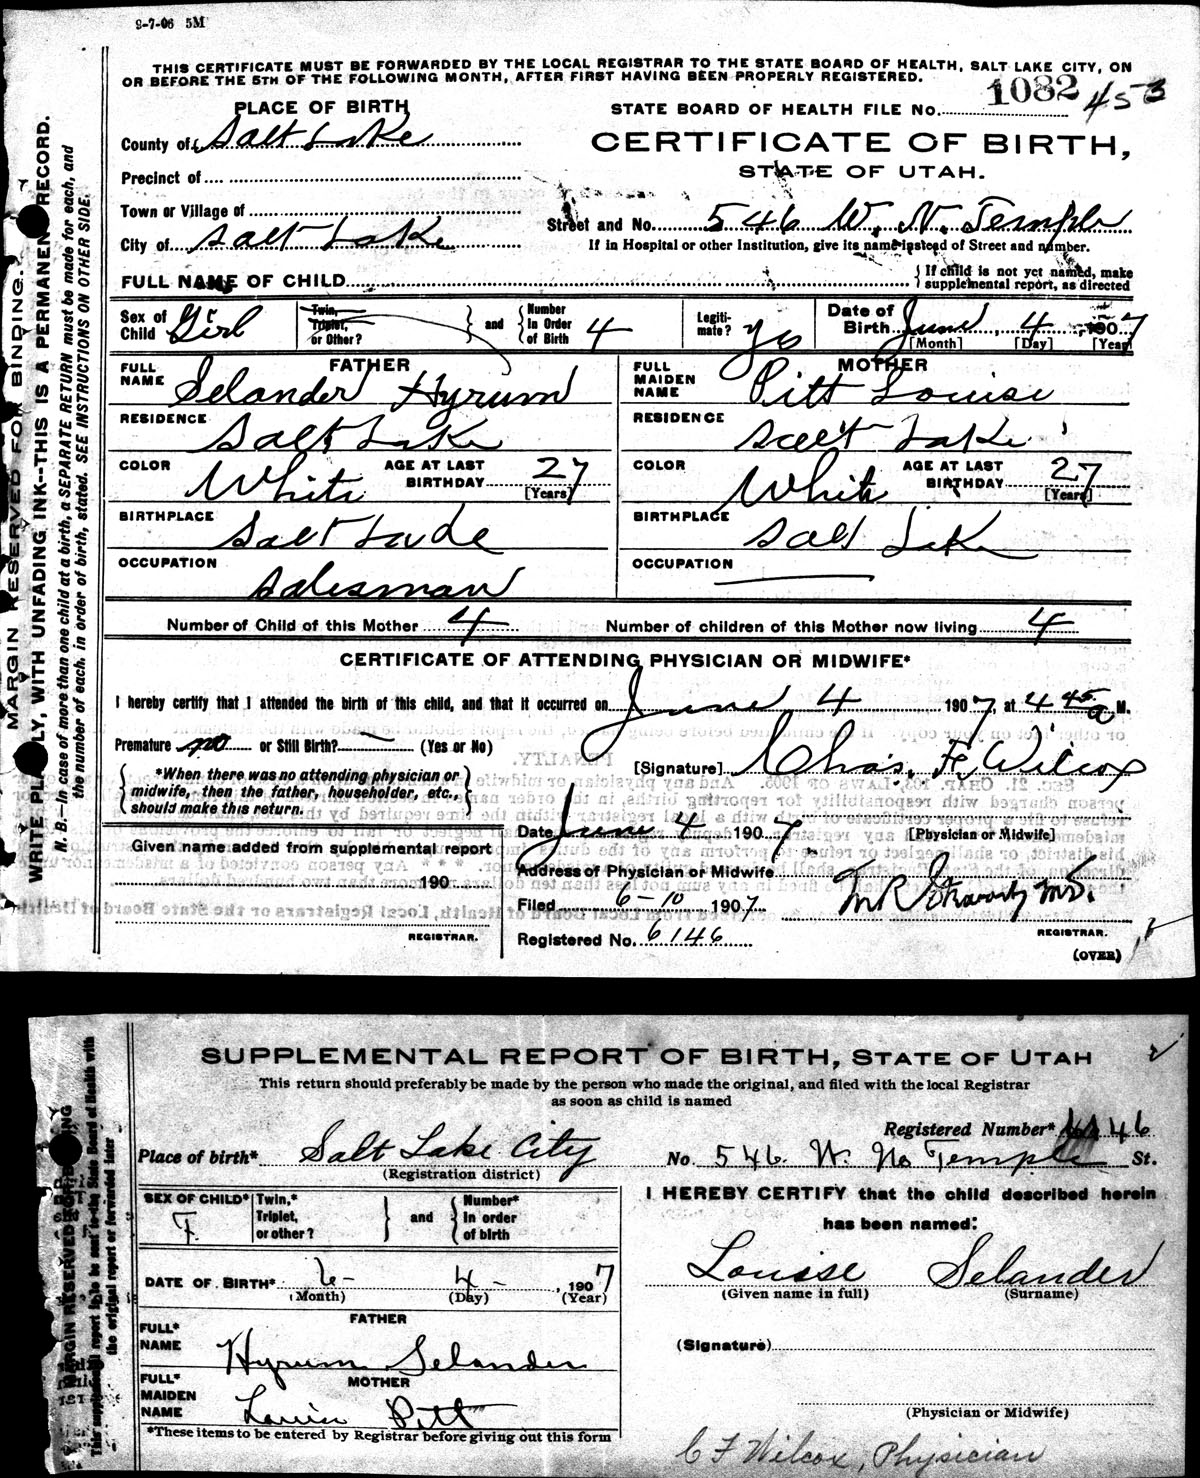 9-7-06 5M
THIS CERTIFICATE MUST BE FORWARDED BY THE LOCAL REGISTRAR TO THE STATE BOARD OF HEALTH, SALT LAKE CITY, ON
OR BEFORE THE 5TH OF THE FOLLOWING MONTH, AFTER FIRST HAVING BEEN PROPERLY REGISTERED.
MARGIN RESERVED FOR BINDING.
WRITE PLAINLY, WITH UNFADING INK--THIS IS A PERMANENT RECORD.
N. B.--In case of more than one child at a birth, a SEPARATE RETURN must be made for each, and
the number of each, in order of birth, stated. SEE INSTRUCTIONS ON OTHER SIDE.
PLACE OF BIRTH
STATE BOARD OF HEALTH FILE No. 1082 453
County of Salt Lake
CERTIFICATE OF BIRTH,
STATE OF UTAH.
Precinct of
Town or Village of
Street and No. 546 W. N. Temple
City of Salt Lake
If in Hospital or other Institution, give its name instead of Street and number.
FULL NAME OF CHILD
{ If child is not yet named, make
supplemental report, as directed
Sex of Child Girl
Twin, Triplet, or Other? } and { Number in Order of Birth 4
Legiti- mate? yes
Date of Birth June 4, 1907
[Month] [Day] [Year]
FATHER
FULL NAME Selander Hyrum
MOTHER
FULL MAIDEN NAME Pitt Louise
RESIDENCE Salt Lake
RESIDENCE Salt Lake
COLOR White AGE AT LAST BIRTHDAY 27 [Years]
COLOR White AGE AT LAST BIRTHDAY 27 [Years]
BIRTHPLACE Salt Lake
BIRTHPLACE Salt Lake
OCCUPATION Salesman
OCCUPATION
Number of Child of this Mother 4
Number of children of this Mother now living 4
CERTIFICATE OF ATTENDING PHYSICIAN OR MIDWIFE*
I hereby certify that I attended the birth of this child, and that it occurred on June 4 1907, at 4 45 a M.
Premature no or Still Birth? (Yes or No)
[Signature] Chas. F. Wilcox
{ *When there was no attending physician or
midwife, then the father, householder, etc.,
should make this return. }
Date June 4 1907. [Physician or Midwife]
Given name added from supplemental report
Address of Physician or Midwife
190
Filed 6-10 1907
REGISTRAR.
Registered No. 6146
REGISTRAR.
(OVER)
SUPPLEMENTAL REPORT OF BIRTH, STATE OF UTAH
This return should preferably be made by the person who made the original, and filed with the local Registrar
as soon as child is named
MARGIN RESERVED FOR BINDING
This supplemental report to be sent to the State Board of Health with
the original report or forwarded later
Registered Number* 6146
Place of birth* Salt Lake City
(Registration district)
No. 546 W. No Temple St.
SEX OF CHILD* F.
Twin,* Triplet, or other? } and { Number* In order of birth
I HEREBY CERTIFY that the child described herein
has been named:
DATE OF BIRTH* 6- 4- , 1907
(Month) (Day) (Year)
Louise Selander
(Given name in full) (Surname)
FATHER
FULL* NAME Hyrum Selander
(Signature)
MOTHER
FULL* MAIDEN NAME Louise Pitt
(Physician or Midwife)
*These items to be entered by Registrar before giving out this form
C F Wilcox, Physician